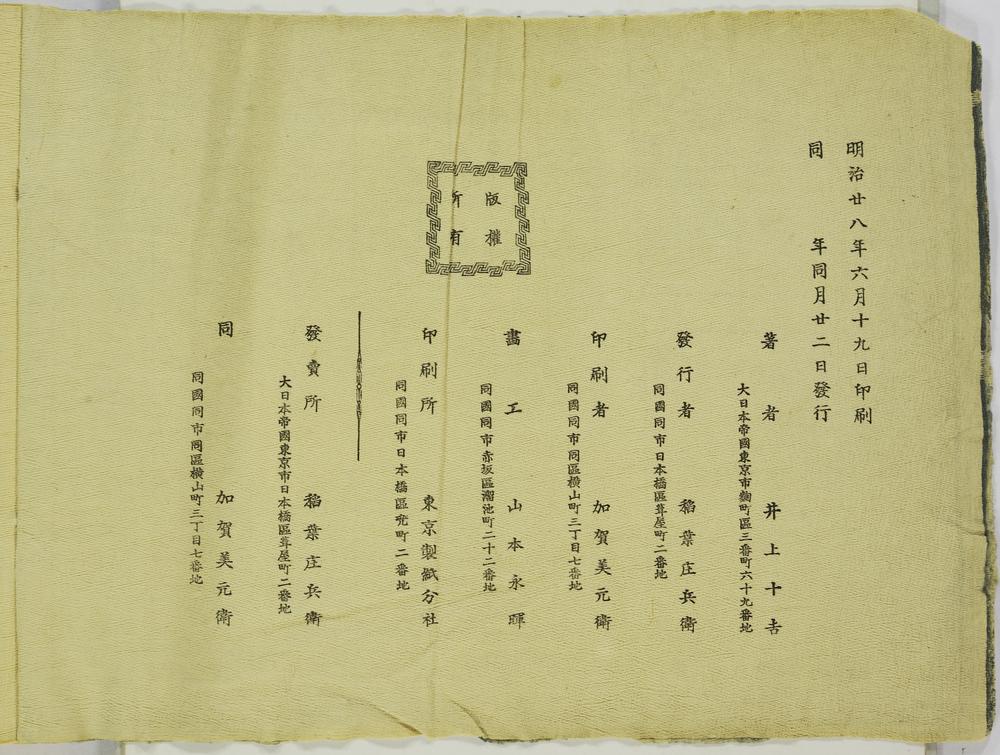 明治廿八年六月十九日印刷
同年同月廿二日發行
著者 井上十吉
大日本帝國東京市麹町區三番町六十九番地
發行者 稻葉庄兵衛
同國同市日本橋區葺屋町二番地
印刷者 加賀美元衛
同國同市同區横山町三丁目七番地
畵工 山本永暉
同國同市赤坂區溜池町二十二番地
版權
所有
印刷所 東京製紙分社
同國同市日本橋區兜町二番地
發賣所 稻葉庄兵衛
大日本帝國東京市日本橋區葺屋町二番地
同 加賀美元衛
同國同市同區横山町三丁目七番地